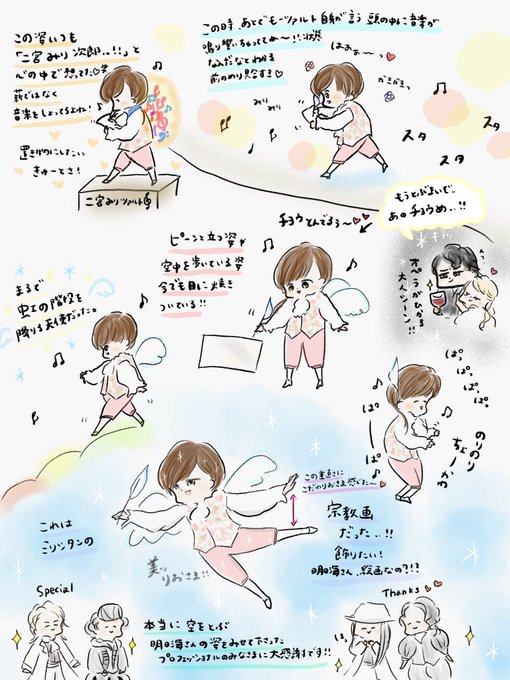 この姿いつも
「二宮みりツ次郎…!!」と
心の中で想ってた
薪ではなく
音楽をしょってるよね!
置きものにしたい
きゅートさ!
二宮みりツァルト
この時、あとでモーツァルト自身が言う 頭の中に音楽が
鳴り響いちゃってぬ〜!!状態
なんだなとわかる
前のめり具合すき
はぁぁぁ〜っ
みりみり
かきかきっ
スタ
スタ
スタ
スタ
もうとぶまいぞ…
あのチョウめ…!!
キラッ
チョウとんでるぅ〜
ピーンと立つ姿が
空中を歩いている姿
今でも目に焼き
ついている!!
オペラがひかる
大人ツーン!!
まるで
虹の階段を
降りる天使だった。
ぱっ
ぱっ
ぱっ
ぱっ
ぱっ
ぱ
のりのり
ちょーかわ
この重長さに
こだわりおさま感じた〜
宗教画
だった…!!
飾りたい!
明日海さん、絵画なの?!?
これは
ミリッタンの
美ッ
りおさま!!
Special
Thanks
ほ、
本当に空をとぶ
明日海さんの姿をみせて下さった
プロフェッショナルのみなさまに大感謝です!!